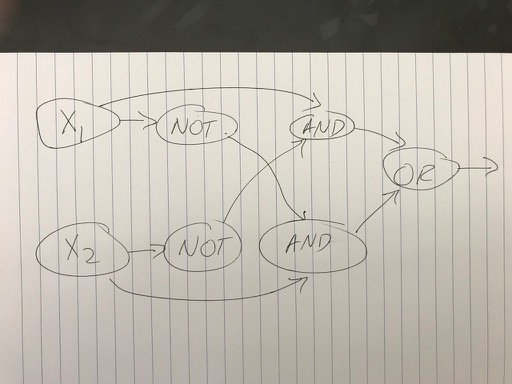 X1 NOT AND
OR
X2 NOT AND